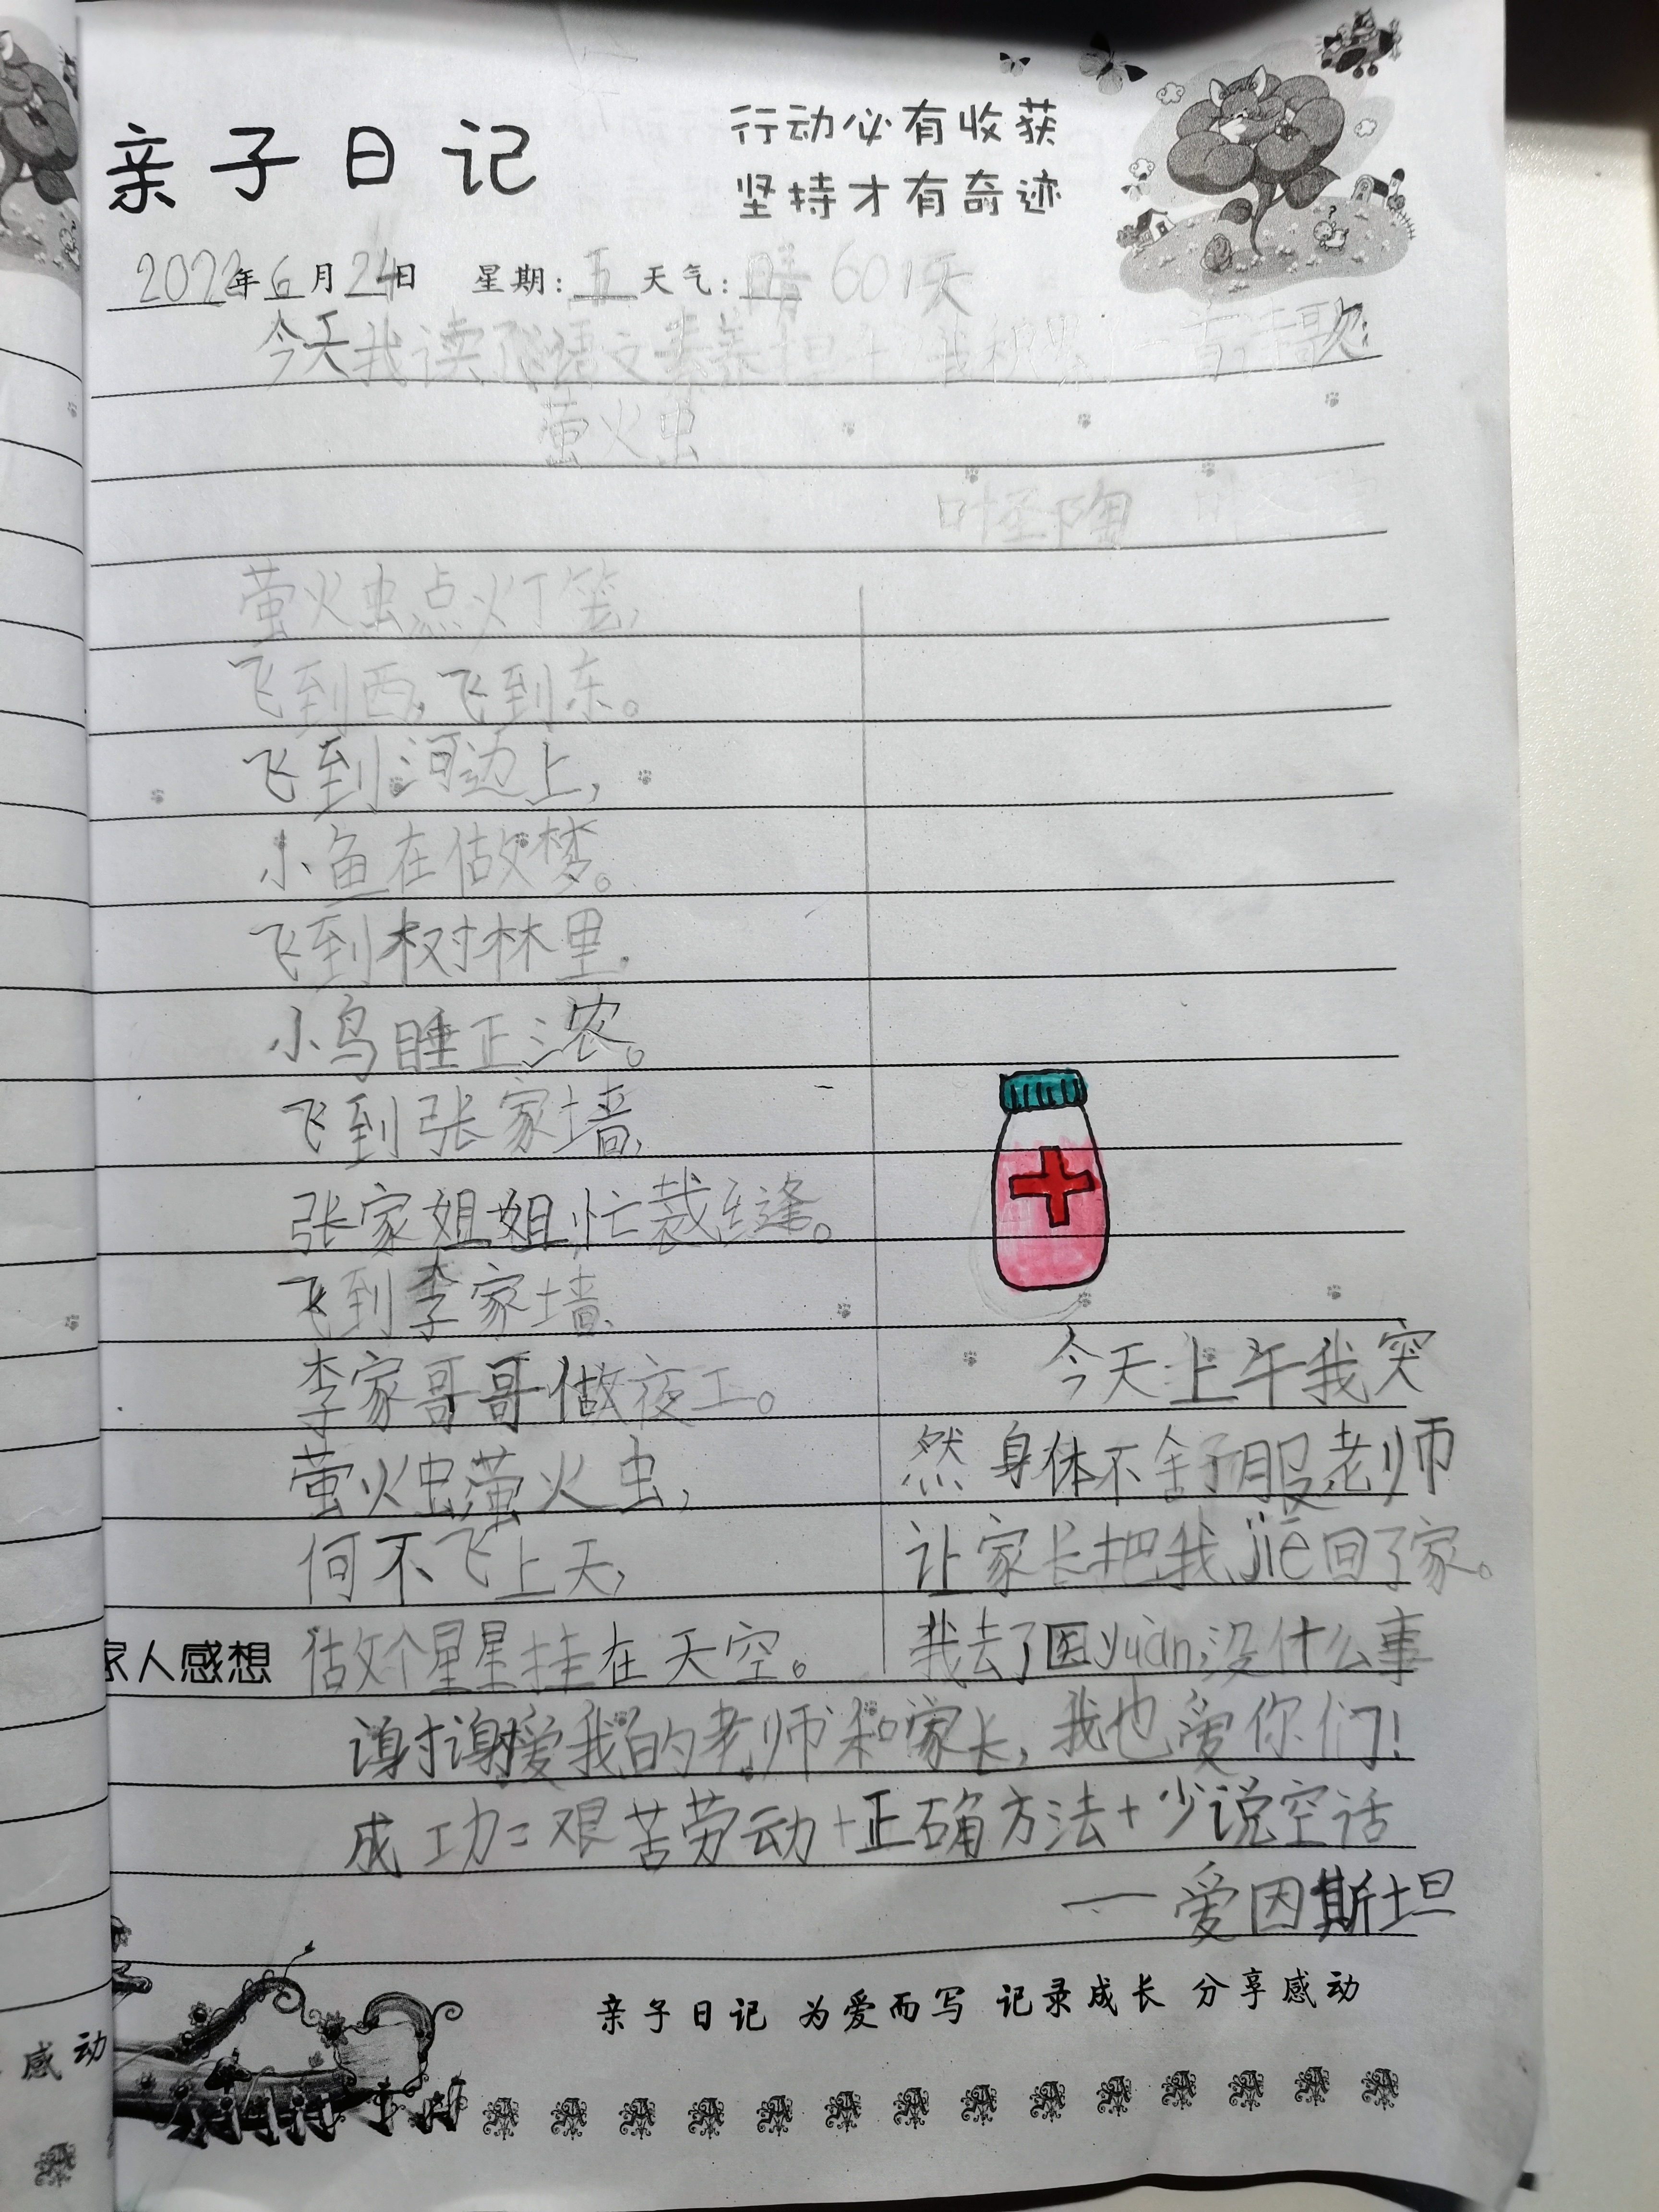 亲子日记
行动必有收获
坚持才有奇迹
2022年6月24日 星期:五 天气:晴 601天
今天我读了语文素养 我 一首诗歌:
萤火虫
叶圣陶
萤火虫点灯笼,
飞到西,飞到东。
飞到河边上,
小鱼在做梦。
飞到树林里,
小鸟睡正浓。
飞到张家墙,
张家姐姐忙裁缝。
飞到李家墙,
李家哥哥做夜工。
萤火虫,萤火虫,
何不飞上天,
做个星星挂在天空。
今天上午我突
然身体不舒服老师
让家长把我jiē回了家。
我去了医yuàn,没什么事
家人感想
谢谢爱我的老师和家长,我也爱你们!
成功=艰苦劳动+正确方法+少说空话
——爱因斯坦
亲子日记 为爱而写 记录成长 分享感动
感动